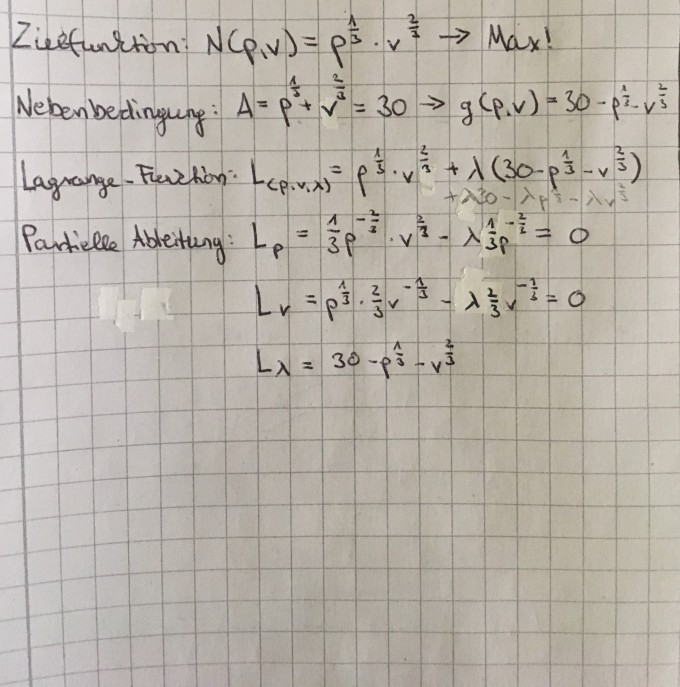 Zielfunktion: N(p,v) = p^{1/3} · v^{2/3} → Max!
Nebenbedingung: A = p^{1/3} + v^{2/3} = 30 → g(p,v) = 30 - p^{1/3} - v^{2/3}
Lagrange-Funktion: L(p,v,λ) = p^{1/3} · v^{2/3} + λ(30 - p^{1/3} - v^{2/3})
+ λ30 - λp^{1/3} - λv^{2/3}
Partielle Ableitung: L_p = 1/3 p^{-2/3} · v^{2/3} - λ 1/3 p^{-2/3} = 0
L_v = p^{1/3} · 2/3 v^{-1/3} - λ 2/3 v^{-1/3} = 0
L_λ = 30 - p^{1/3} - v^{2/3}